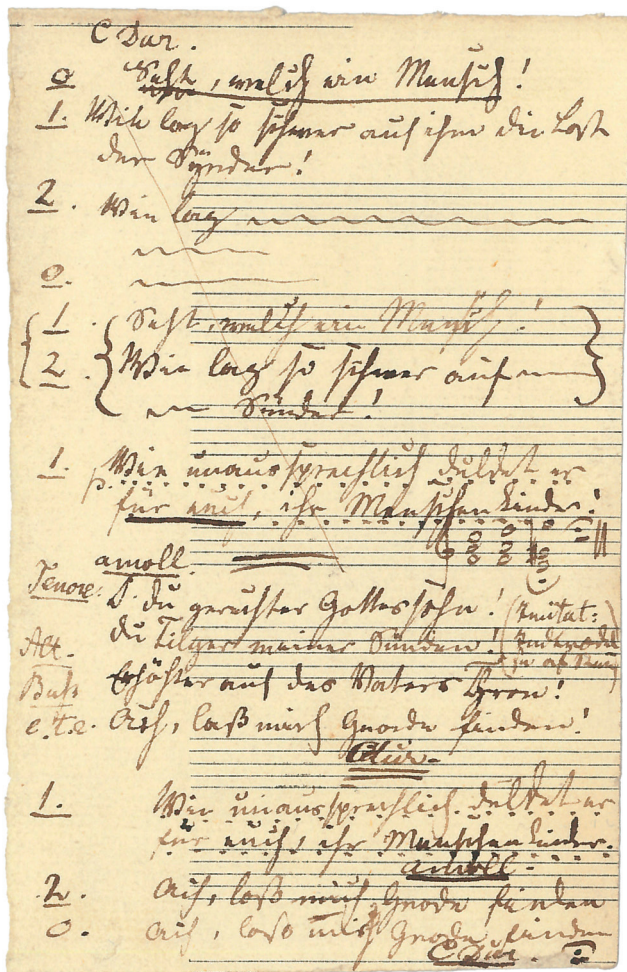 C Dur.
0 Seht, welch ein Mensch!
1. Wie lag so schwer auf ihm die Last
der Sünder!
2. Wie lag
0.
1. Seht, welch ein Mensch!
2. Wie lag so schwer auf
Sünder!
1. Wie unaussprechlich duldet er
p.
für euch, ihr Menschenkinder!
amoll.
Tenore: O du gerechter Gottessohn!
Alt. du Tilger meiner Sünden!
Baß Erhöhter auf des Vaters Thron!
e.t.c. Ach, laß mich Gnade finden!
Cdur.
1. Wie unaussprechlich duldet er
für euch, ihr Menschenkinder.
amoll.
2. Ach, laß mich Gnade finden
0. Ach, laß mich Gnade finden
C Dur.